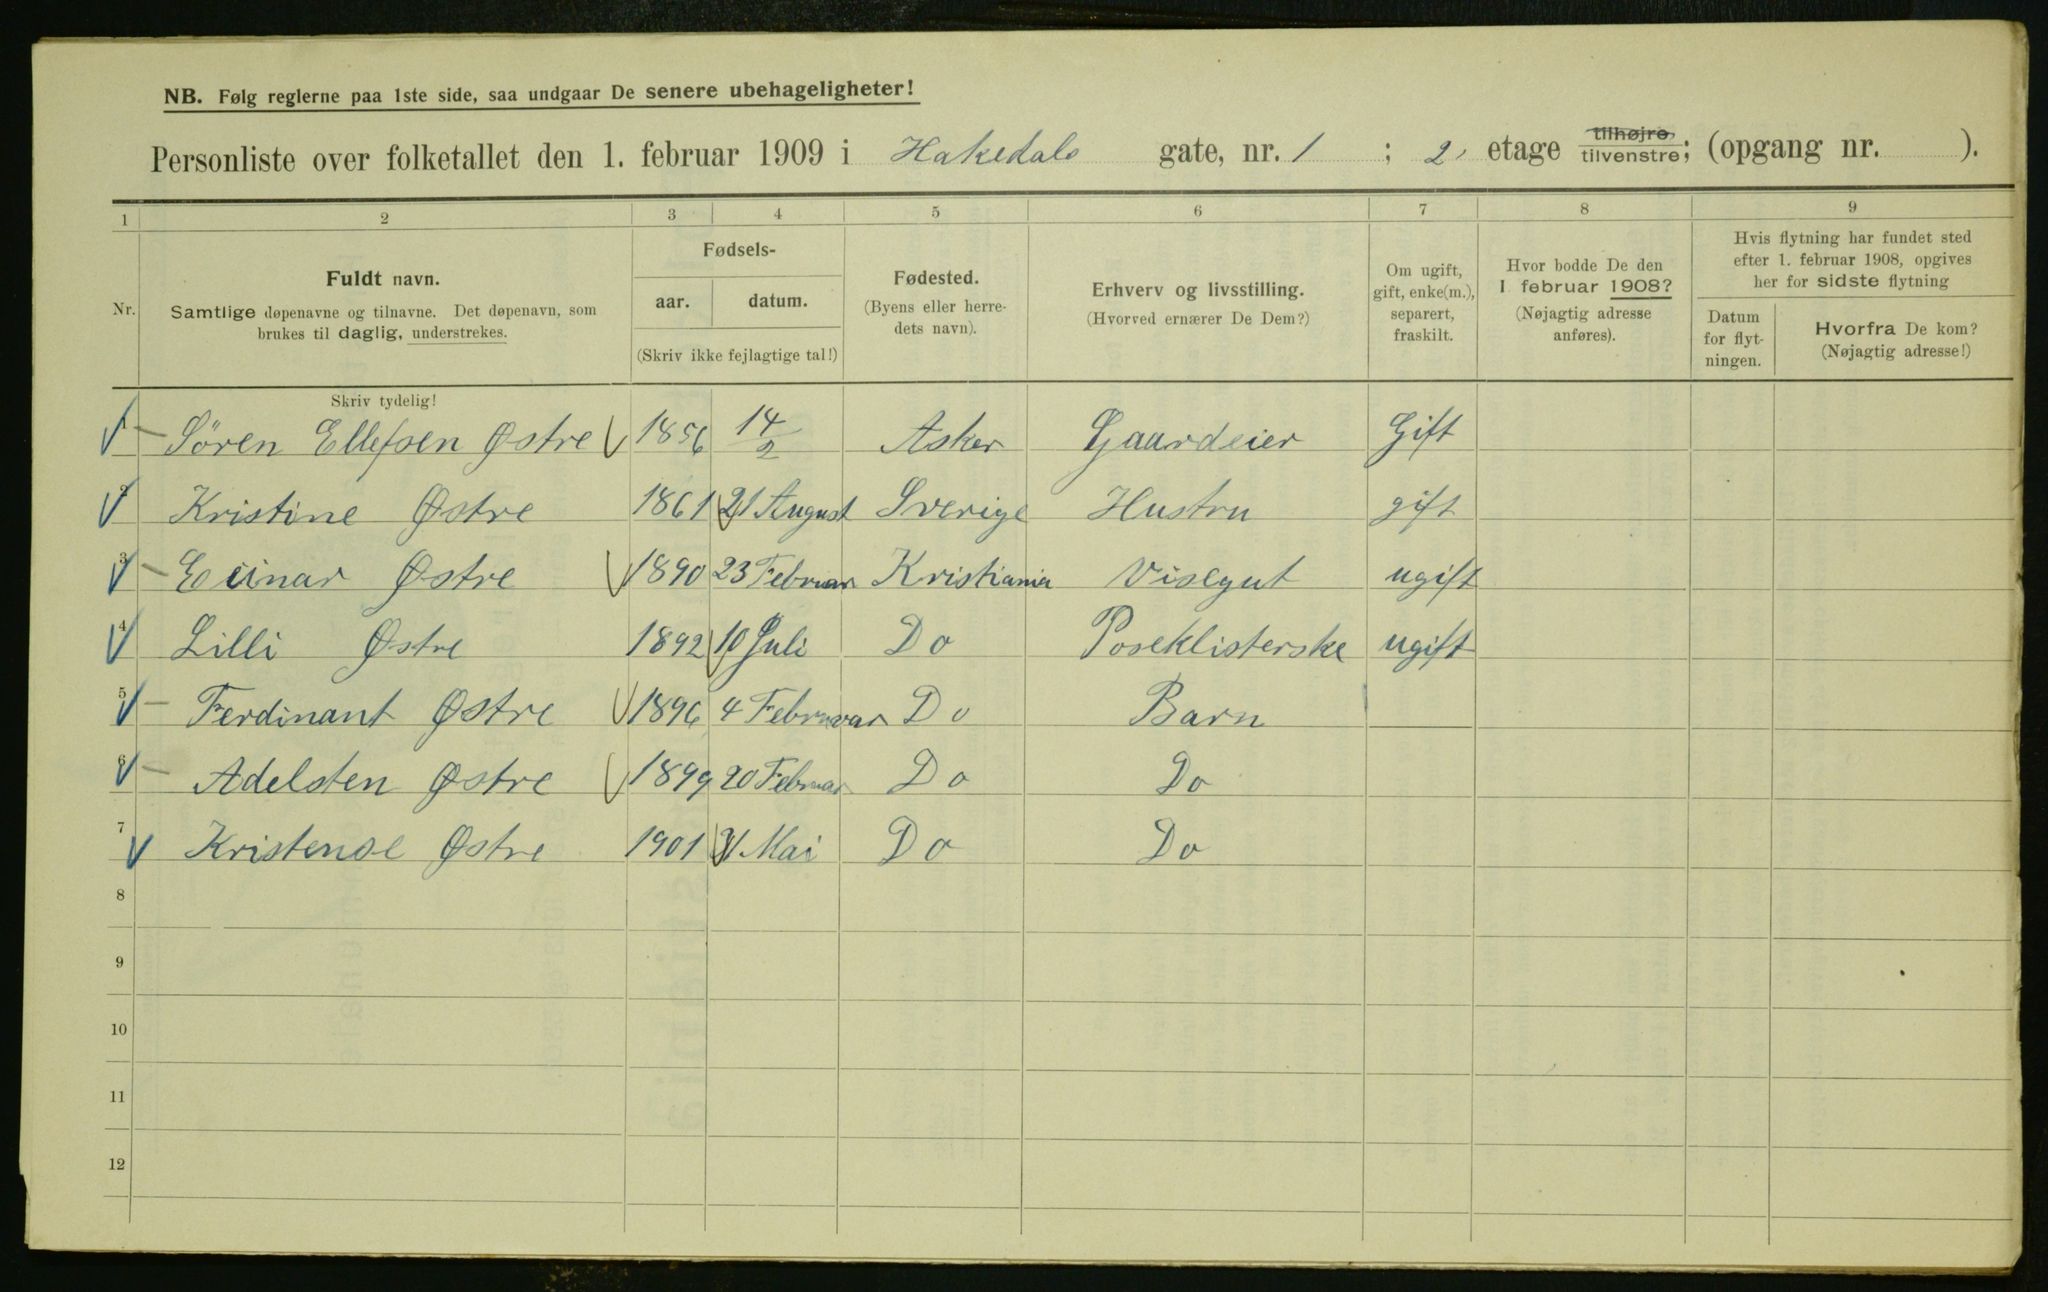 NB. Følg reglerne paa 1ste side, saa undgaar De senere ubehageligheter!
Personliste over folketallet den 1. februar 1909 i Hakedals gate, nr. 1 ; 2. etage tilhøjre tilvenstre; (opgang nr. ).
1 2 3 4 5 6 7 8 9
Nr.
Fuldt navn.
Samtlige døpenavne og tilnavne. Det døpenavn, som
brukes til daglig, understrekes.
Fødsels-
aar. datum.
(Skriv ikke fejlagtige tal!)
Fødested.
(Byens eller herre-
dets navn).
Erhverv og livsstilling.
(Hvorved ernærer De Dem?)
Om ugift,
gift, enke(m.),
separert,
fraskilt.
Hvor bodde De den
1 februar 1908?
(Nøjagtig adresse
anføres).
Hvis flytning har fundet sted
efter 1. februar 1908, opgives
her for sidste flytning
Datum
for flyt-
ningen.
Hvorfra De kom?
(Nøjagtig adresse!)
Skriv tydelig!
1 Sören Ellefsen Østre 1856 14/2 Asker Gaardeier Gift
2 Kristine Østre 1861 21 August Sverige Hustru gift
3 Einar Østre 1890 23 Februar Kristiania Visegut ugift
4 Lilli Østre 1892 10 Juli Do Poseklisterske ugift
5 Ferdinant Østre 1896 4 Februar Do Barn
6 Adelsten Østre 1899 20 Februar Do Do
7 Kristense Østre 1901 Mai Do Do
8
9
10
11
12